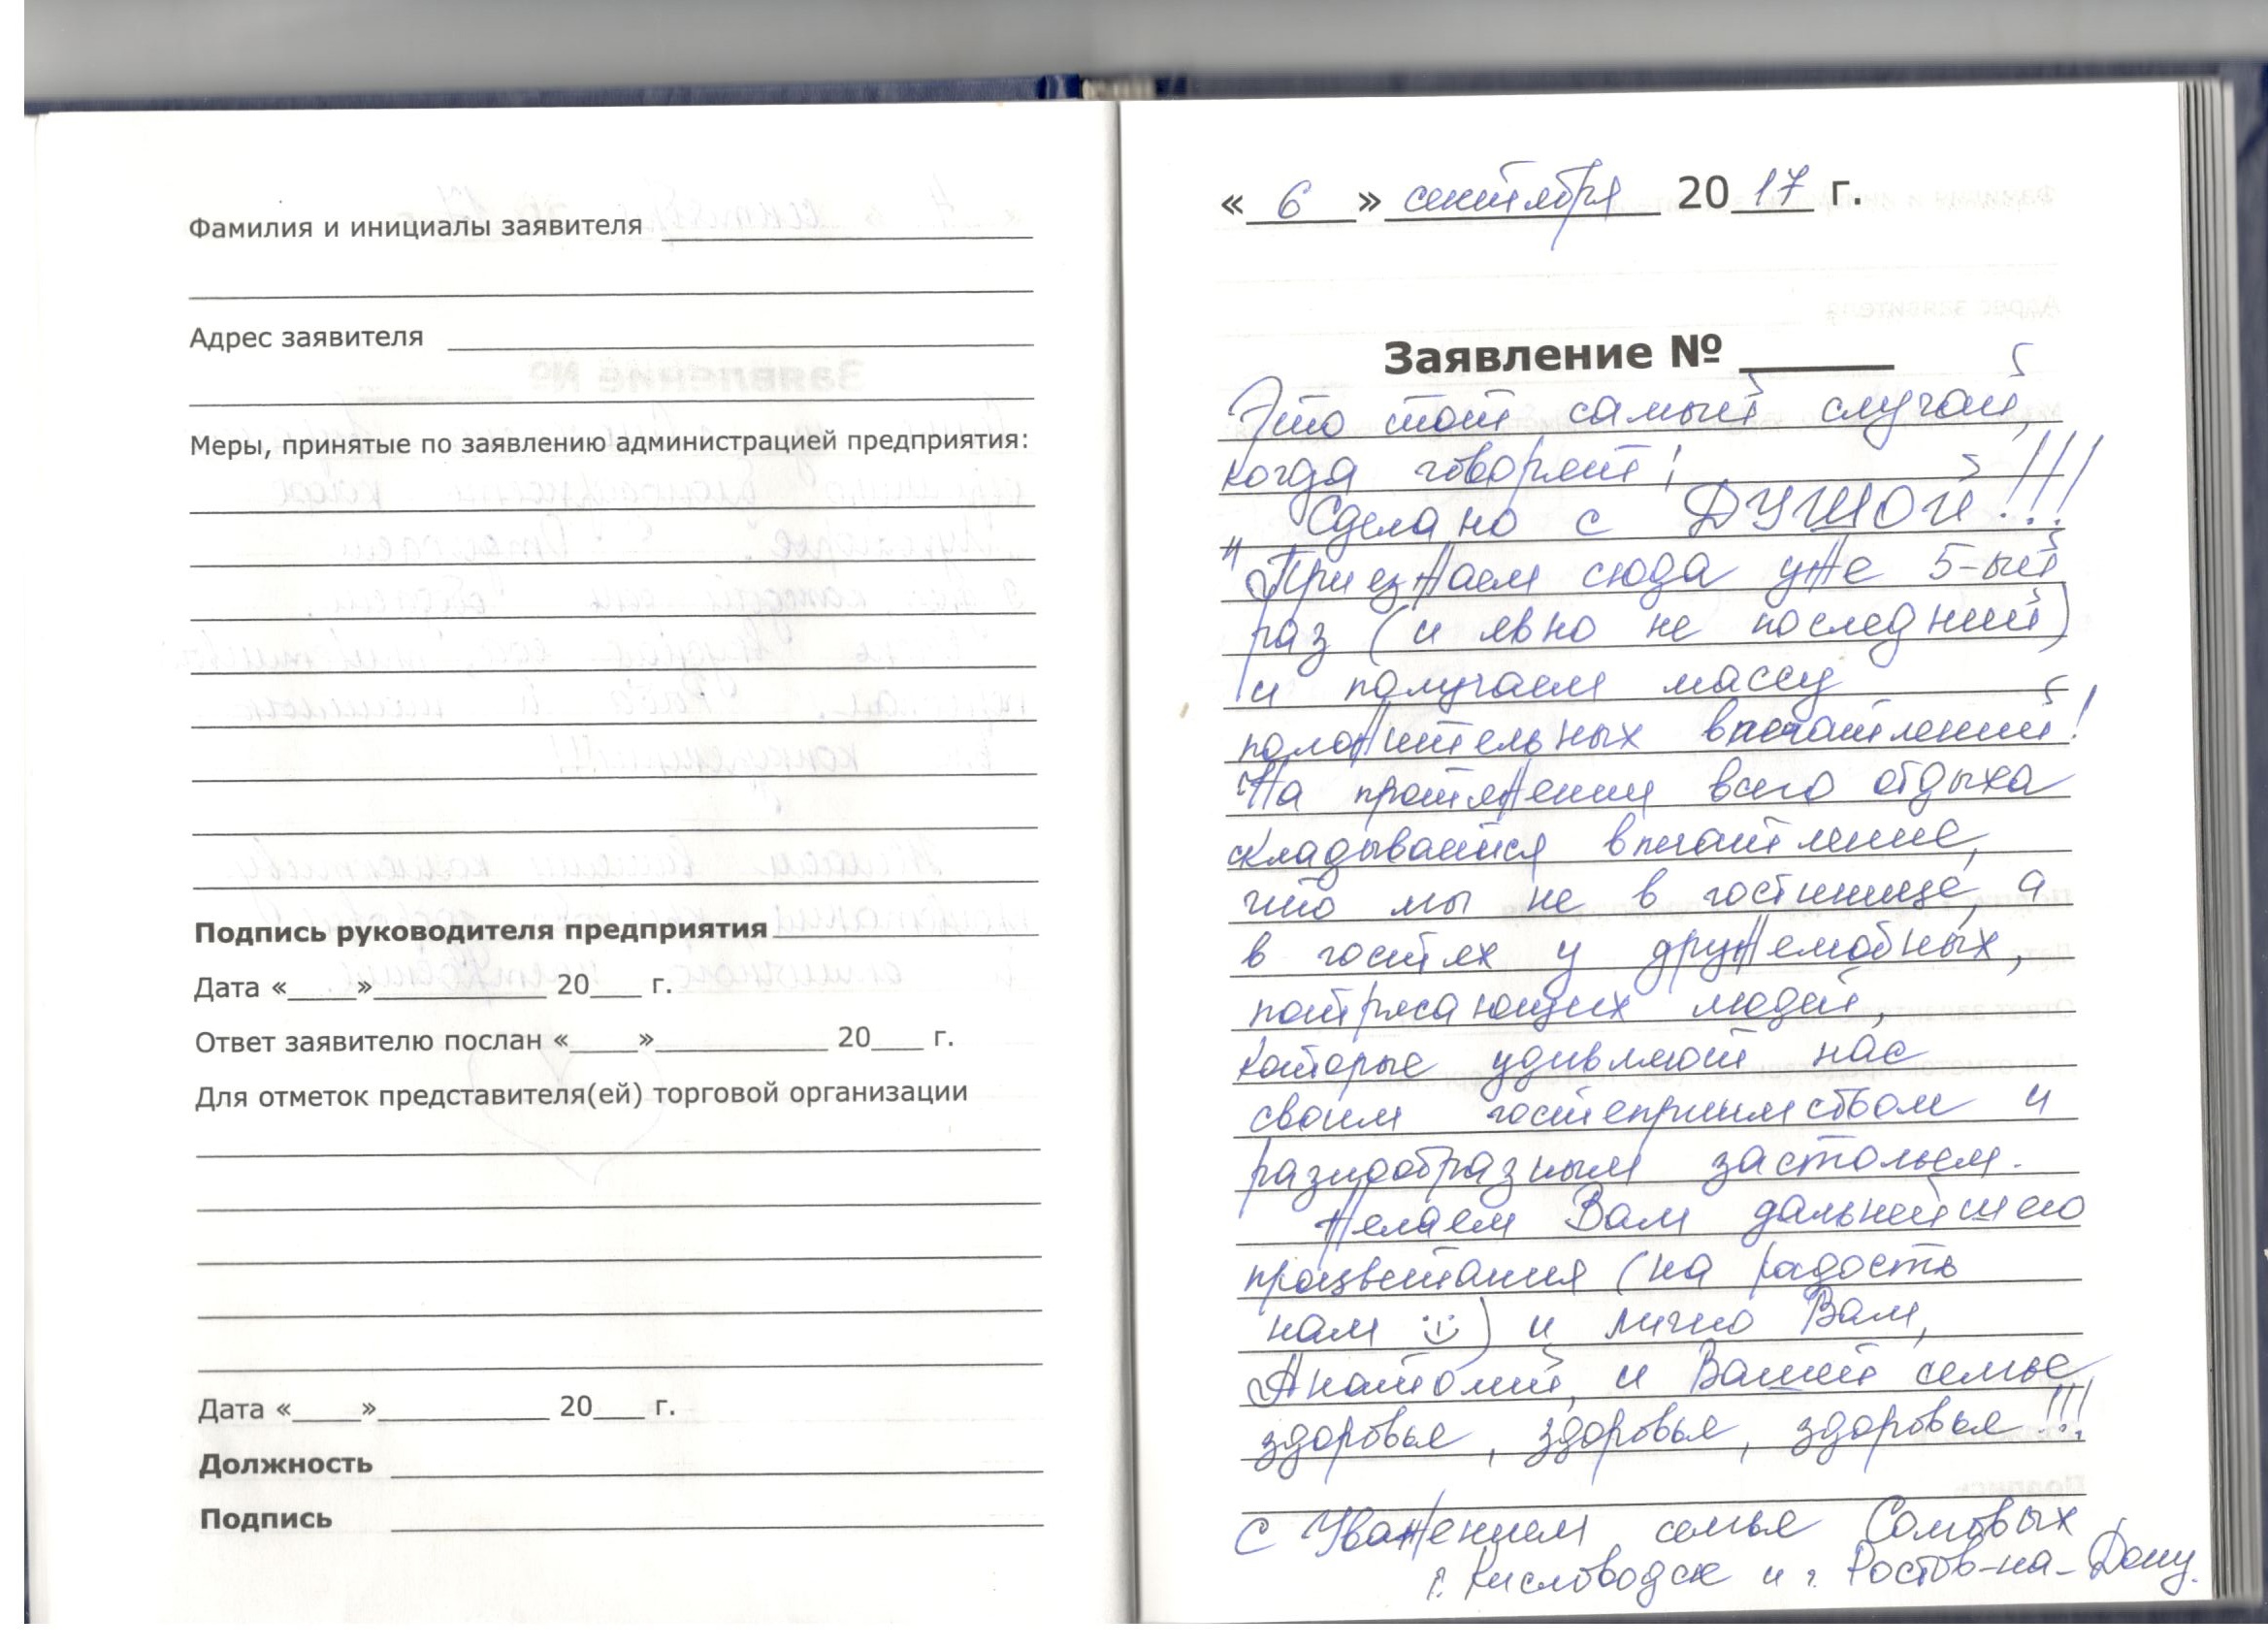 Фамилия и инициалы заявителя
Адрес заявителя
Меры, принятые по заявлению администрацией предприятия:
Подпись руководителя предприятия
Дата «____»____________ 20___ г.
Ответ заявителю послан «____»____________ 20___ г.
Для отметок представителя(ей) торговой организации
Дата «____»____________ 20___ г.
Должность
Подпись
« 6 » сентября 2017 г.
Заявление № ______
Это тот самый случай,
когда говорят:
"Сделано с ДУШОЙ!!!
Приезжаем сюда уже 5-ый
раз (и явно не последний)
и получаем массу
положительных впечатлений!
На протяжении всего отдыха
складывается впечатление,
что мы не в гостинице, а
в гостях у дружелюбных,
потрясающих людей,
которые удивляют нас
своим гостеприимством и
разнообразным застольем.
Желаем Вам дальнейшего
процветания (на радость
нам :)) и лично Вам,
Анатолий, и Вашей семье
здоровье, здоровье, здоровье!!!
С Уважением семья Сомовых
г. Кисловодск и г. Ростов-на-Дону.